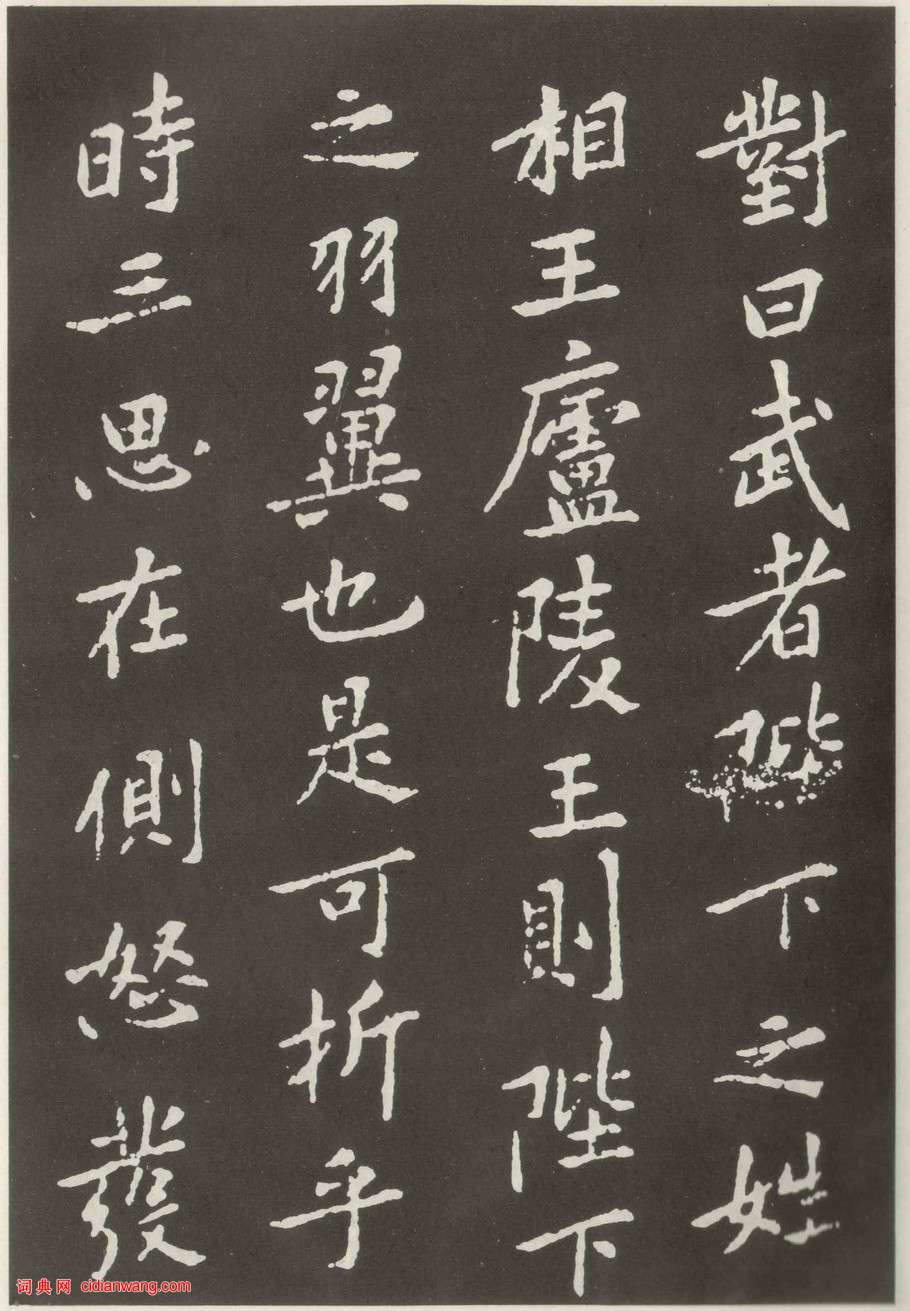 對曰武者陛下之姓
相王廬陵王則陛下
之羽翼也是可折乎
時三思在側怒發
词典网 cidianwang.com